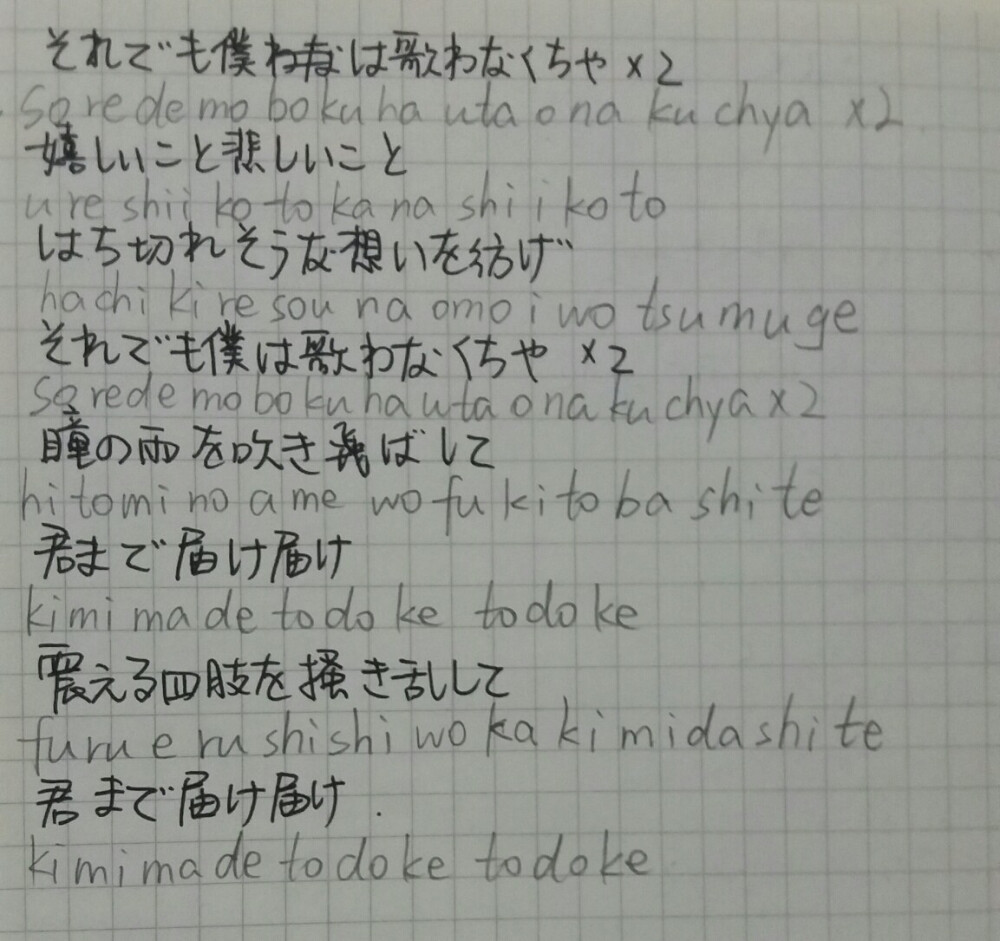 それでも僕は歌わなくちゃ ×2
soredemo boku ha utaona ku chya x2
嬉しいこと悲しいこと
ure shii ko to ka na shi i ko to
はち切れそうな想いを紡げ
hachi ki re sou na omo i wo tsumuge
それでも僕は歌わなくちゃ ×2
soredemo boku ha uta ona ku chya x2
瞳の雨を吹き飛ばして
hi tomi no a me wo fu ki to ba shi te
君まで届け届け
kimi made todo ke todo ke
震える四肢を掻き乱して
furu e ru shi shi wo ka ki mida shi te
君まで届け届け
kimi made todo ke todo ke